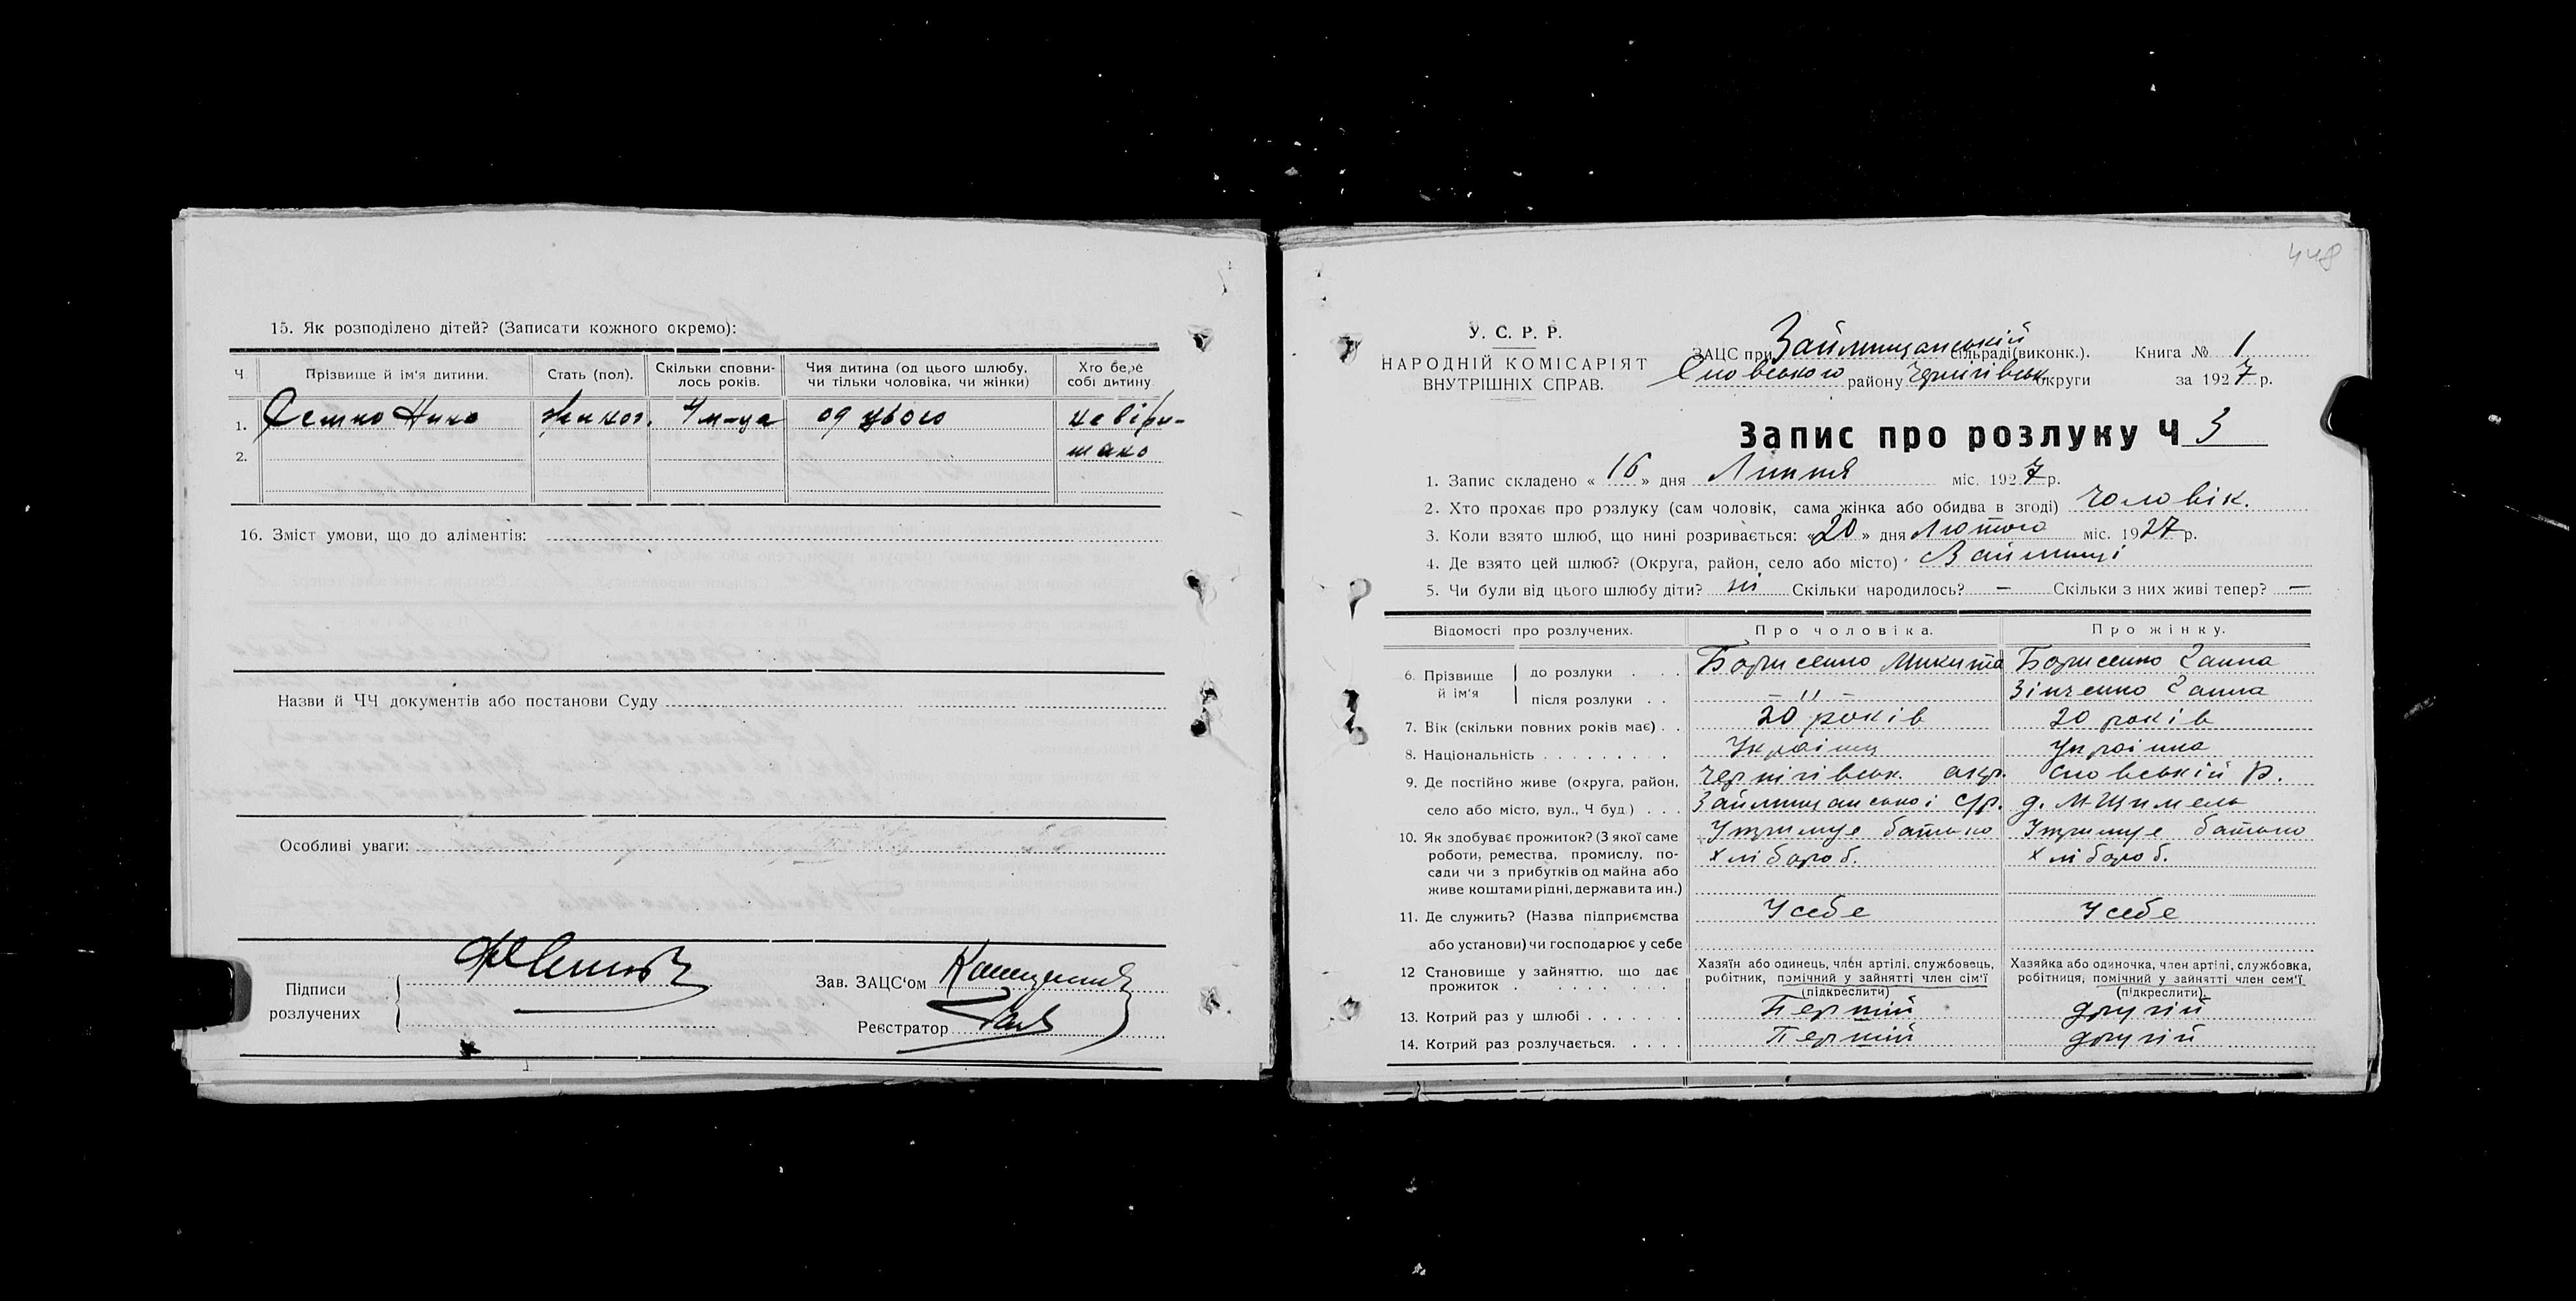 15. Як розподілено дітей? (Записати кожного окремо):
Ч. Прізвище й ім'я дитини. Стать (пол). Скільки сповни-лось років. Чия дитина (од цього шлюбу, чи тільки чоловіка, чи жінки) Хто бере собі дитину
1. Семко Нина жиноч. 4 м-ця од цього не вірі-
2. шано
16. Зміст умови, що до аліментів:
Назви й ЧЧ документів або постанови Суду
Особливі уваги:
Підписи розлучених
Зав. ЗАЦС'ом
Реєстратор
448
У. С. Р. Р.
НАРОДНІЙ КОМІСАРІЯТ
ВНУТРІШНІХ СПРАВ.
ЗАЦС при Займищанській сільраді (виконк.). Книга № 1
Сновського району Чернігівськ округи за 1927 р.
Запис про розлуку Ч 3
1. Запис складено « 16 » дня Липня міс. 1927 р.
2. Хто прохає про розлуку (сам чоловік, сама жінка або обидва в згоді) Чоловік.
3. Коли взято шлюб, що нині розривається: «20» дня Лютого міс. 1927 р.
4. Де взято цей шлюб? (Округа, район, село або місто) Займищі
5. Чи були від цього шлюбу діти? ні Скільки народилось? — Скільки з них живі тепер? —
Відомості про розлучених. Про чоловіка. Про жінку.
6. Прізвище й ім'я до розлуки Борисенко Микита Борисенко Ганна
після розлуки – " – Зінченко Ганна
7. Вік (скільки повних років має) 20 років 20 років
8. Національність Українц Українка
9. Де постійно живе (округа, район, Чернігівськ. окр. Сновській р.
село або місто, вул., Ч буд.) Займищанської с/р. д. М-Щимель
10. Як здобуває прожиток? (З якої саме Утримує батько Утримує батько
роботи, ремества, промислу, по- хлібороб. хлібороб.
сади чи з прибутків од майна або
живе коштами рідні, держави та ин.)
11. Де служить? (Назва підприємства У себе У себе
або установи) чи господарює у себе
12 Становище у зайняттю, що дає прожиток Хазяїн або одинець, член артілі, службовець, робітник, помічний у зайнятті член сім'ї (підкреслити) Хазяйка або одиночка, член артілі, службовка, робітниця, помічний у зайнятті член сем'ї (підкреслити)
13. Котрий раз у шлюбі Перший другій
14. Котрий раз розлучається. Перший другій